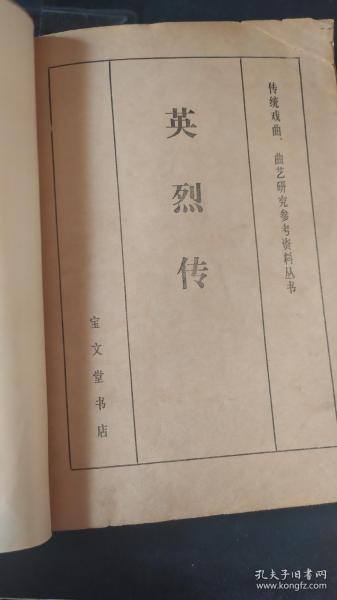 传统戏曲、曲艺研究参考资料丛书
英烈传
宝文堂书店
孔夫子旧书网